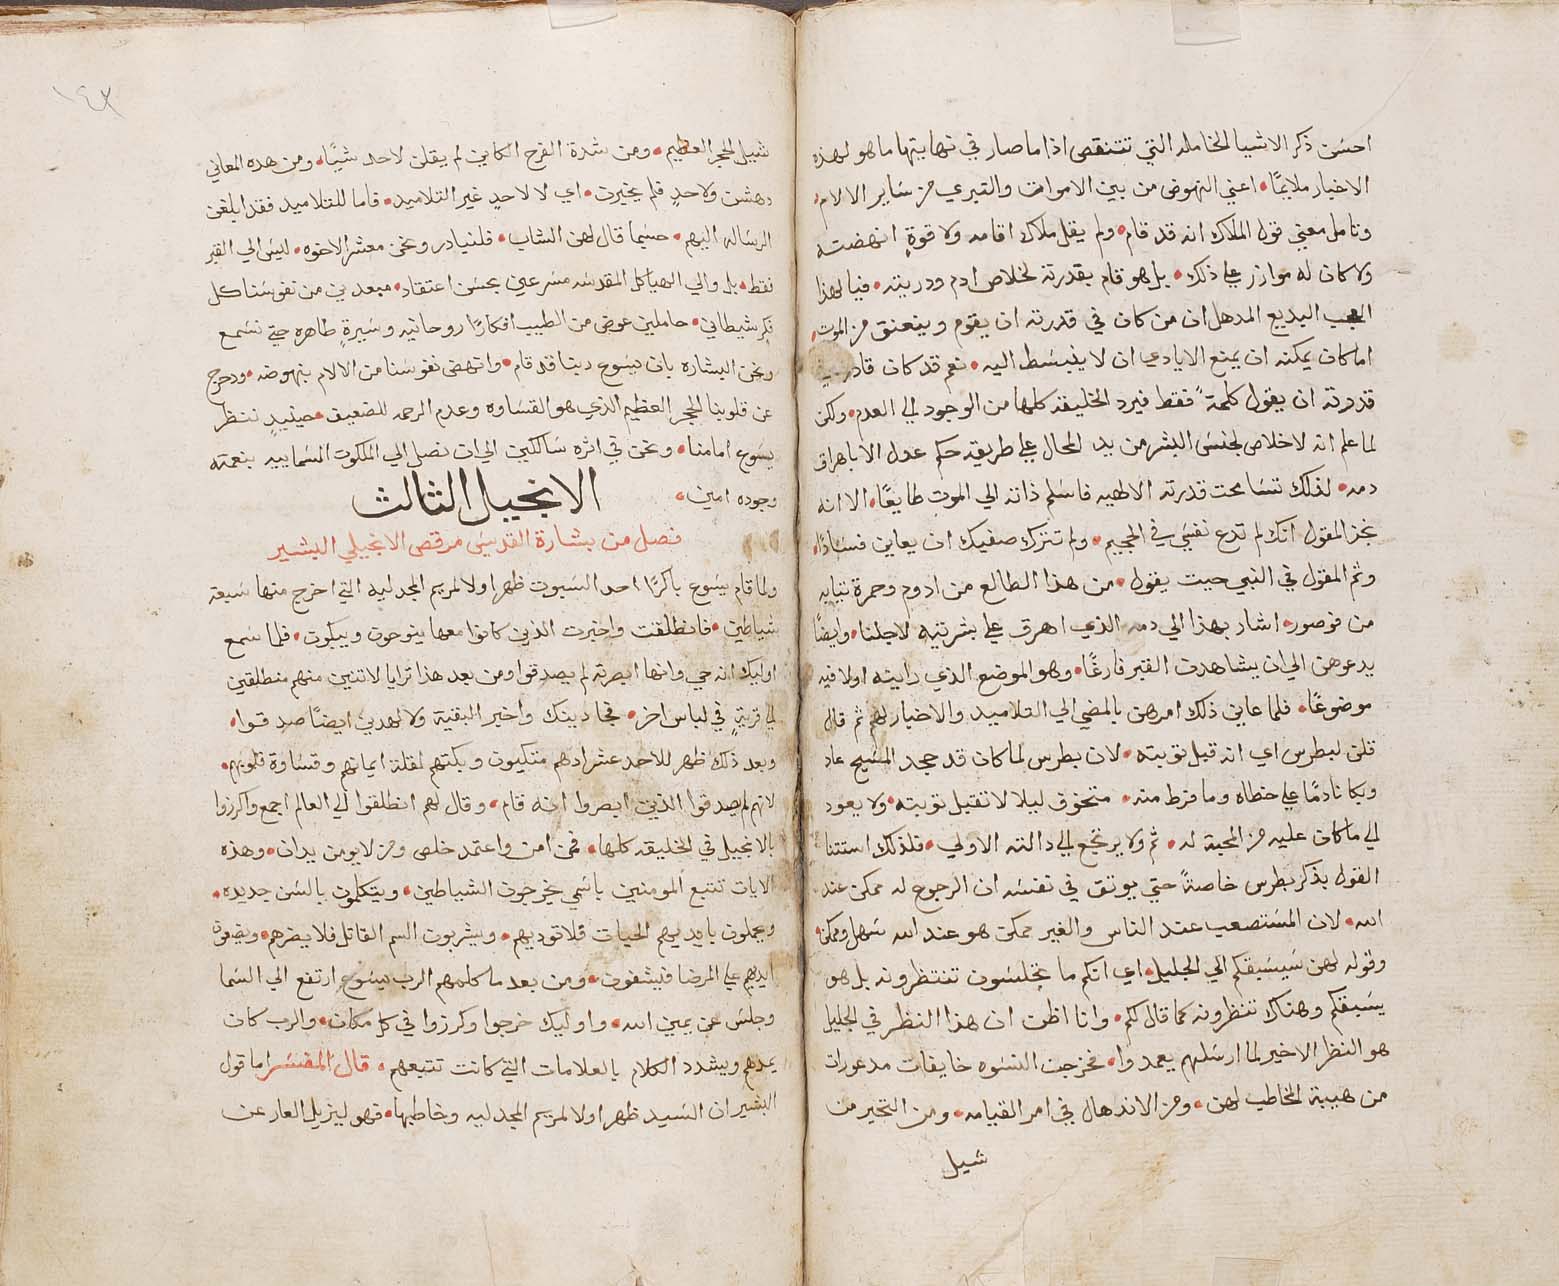 احسن ذكر الاشيا الخامله التي تتنقص اذا ما صار في نهايتها ما هو لهذه
الاخيار ملايمًا • اعني النهوض من بين الاموات والتبري من ساير الالام •
وتامل معني قول الملاك انه قد قام • ولم يقل ملاك اقامه ولا قوةٍ انهضته
ولا كان له موازر علي ذلك • بل هو قام بقدرته لخلاص ادم ودريته • فيا لهذا
العجب البديع المدهل ان من كان في قدرته ان يقوم وينعتق من الموت •
اما كان يمكنه ان يمنع الايادي ان لا ينبسط اليه • نعم قد كان قادر في
قدرته ان يقول كلمةً فقط فيرد الخليقه كلها من الوجود الي العدم • ولكن
لما علم انه لا خلاص لجنس البشر من يد المحال علي طريقه حكم عدل الا باهراق
دمه • لذلك تسامحت قدرته الالهيه فاسلم ذاته الي الموت طايعًا • الا انه
نجز المقول انك لم تدع نفسي في الجحيم • ولم تترك صفيك ان يعاين فسادًا •
وثم المقول في النبي حيت يقول • من هذا الطالع من ادوم وحمرة تيابه
من فوصور • اشار بهذا الي دمه الذي اهرق علي بشرتيه لاجلنا • وايضًا
يدعوهن الي ان يشاهدت القبر فارغًا • وهو الموضع الذي راينه اولا فيه
موضوعًا • فلما عاين ذلك امرهن بالمضي الي التلاميد والاخيار لهم ثم قال
قلن لبطرس اي انه قبل توبته • لان بطرس لما كان قد جحد المسيح عاد
وبكا نادمًا علي خطاه وما فرط منه • متخوف ليلا لا تقبل توبته • ولا يعود
الي ما كان عليه من المحبة له • ثم ولا يرتجع الي دالته الاولي • فلذلك استتنا
القول بذكر بطرس خاصةً حتي يوتق في نفسه ان الرجوع له ممكن عند
الله • لان المستصعب عند الناس والغير ممكن هو عند الله سهل وممكن •
وقوله لهن سيسبقكم الي الجليل • اي انكم ما تجلسون تنتظرونه بل هو
يسبقكم وهناك تنظرونه كما قال لكم • وانا اظن ان هذا النظر في الجليل
هو النظر الاخير لما ارسلهم يعمدوا • فخرجن النسوه خايفات مدعورات
من هيبة المخاطب لهن • ومن الاندهال في امر القيامه • ومن التحير من
شيل
١٤٣
شيل الحجر العظيم • ومن شدة الفرح الكاين لم يقلن لاحد شيًا • ومن هده المعاني
دهشن ولاحدٍ فلم يخبرن • اي لا لاحدٍ غير التلاميد • فاما للتلاميد فقد ابلغن
الرساله اليهم • حسبما قال لهن الشاب • فلنبادر ونحن معشر الاخوه • ليس الي القبر
فقط • بل والي الهياكل المقدسه مسرعين بحسن اعتقاد • مبعدين من نفوسنا كل
فكر شيطاني • حاملين عوض من الطيب افكارًا روحانيه وسيرةٍ طاهره حتي نسمع
ونحن البشاره بان يسوع ربنا قد قام • وانهض نفوسنا من الالام بنهوضه • ودحرج
عن قلوبنا الحجر العظيم الذي هو القساوه وعدم الرحمه للضعيف • حينيدٍ ننظر
يسوع امامنا • ونحن في اثره سالكين الي ان نصل الي الملكوت السماييه بنعمته
وجوده امين •
الانجيل الثالث
فصل من بشارة القديس مرقص الانجيلي البشير
ولما قام يسوع باكرًا احد السبوت ظهر اولا لمريم المجدليه التي اخرج منها سبعة
شياطين • فانطلقت واخبرت الذين كانوا معها ينوحون ويبكون • فلما سمع
اوليك انه حي وانها ابصرته لم يصدقوا ومن بعد هذا ترايا لاتنين منهم منطلقين
الي قريةٍ في لباس اخر • فجا دينك واخبر البقية ولا لهدين ايضًا صدقوا •
وبعد ذلك ظهر للاحد عشر اد هم متكيون وبكتهم لقلة ايمانهم وقساوة قلوبهم •
لانهم لم يصدقوا الذين ابصروا انه قام • وقال لهم انطلقوا الي العالم اجمع واكرزوا
بالانجيل في الخليقه كلها • فمن امن واعتمد خلص ومن لا يومن يدان • وهذه
الايات تتبع المومنين باسمي يخرجون الشياطين • ويتكلمون بالسن جديده •
ويحملون بايديهم الحيات فلا توديهم • ويشربون السم القاتل فلا يضرهم • ويضعون
ايديهم علي المرضا فيشفون • ومن بعد ما كلمهم الرب يسوع ارتفع الي السما
وجلس عن يمين الله • واوليك خرجوا وكرزوا في كل مكان • والرب كان
يمدهم ويشدد الكلام بالعلامات التي كانت تتبعهم • قال المفسر اما قول
البشير ان السيد ظهر اولا لمريم المجدليه وخاطبها • فهو ليزيل العار عن